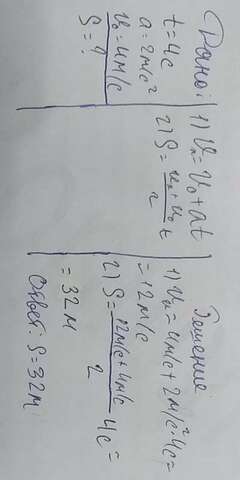 Дано:
t=4c
a=2м/c²
v₀=4м/c
S=?
1) Vₓ=V₀+at
2) S=(vₓ+v₀)/2 t
Решение
1) Vₓ=4м/c+2м/c²·4c=
=12м/c
2) S=(12м/c+4м/c)/2 4c=
=32м
Ответ: S=32м